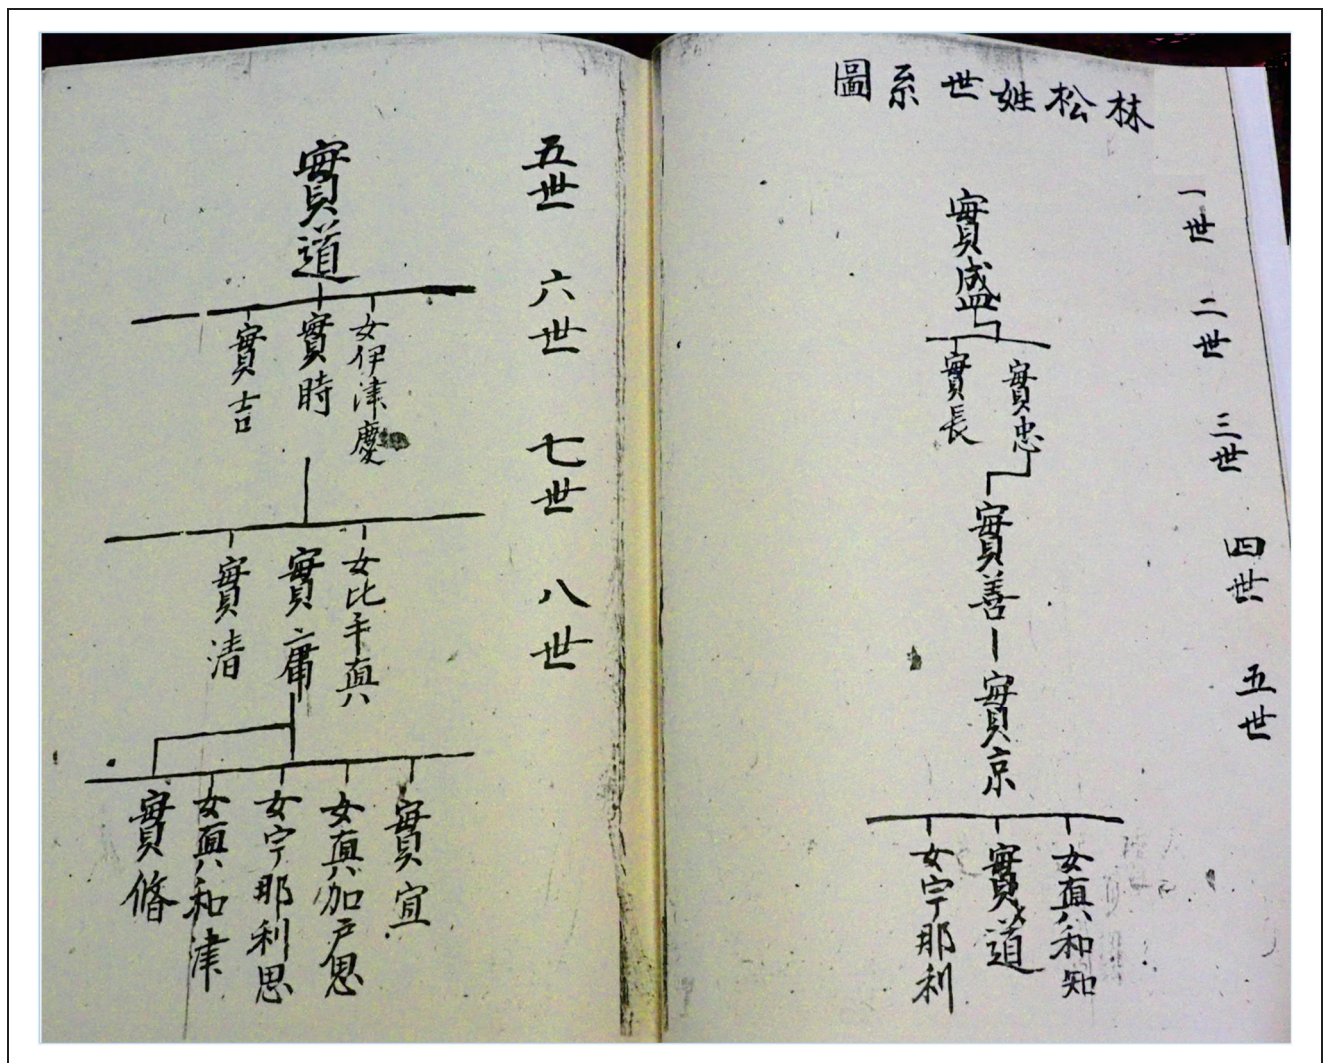 林松姓世系圖
一世
二世
三世
四世
五世
實盛
實忠
實長
實善
實京
女真和知
實道
女宇那利
五世
六世
七世
八世
實道
女伊津慶
實時
實吉
女比千真
實庸
實清
實宜
女真加戸思
女宇那利思
女真和津
實脩